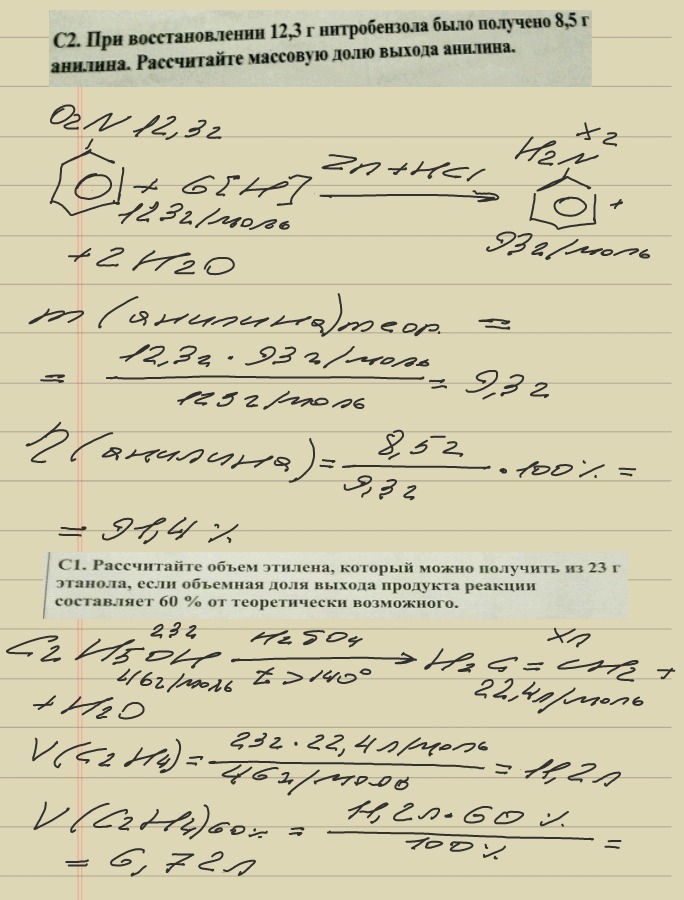 С2. При восстановлении 12,3 г нитробензола было получено 8,5 г
анилина. Рассчитайте массовую долю выхода анилина.
O2N 12,3г
H2N x г
+ 6[H] Zn+HCl +
123г/моль
93г/моль
+2H2O
m (анилина)теор. =
= 12,3г · 93 г/моль
123г/моль = 9,3г
η(анилина) = 8,5г
9,3г · 100% =
= 91,4 %
С1. Рассчитайте объем этилена, который можно получить из 23 г
этанола, если объемная доля выхода продукта реакции
составляет 60 % от теоретически возможного.
23г H2SO4 xл
C2H5OH H2C = CH2 +
46г/моль t>140° 22,4л/моль
+H2O
V(C2H4) = 23г · 22,4л/моль
46г/моль = 11,2л
V(C2H4)60% = 11,2л · 60 %
100% =
= 6,72л